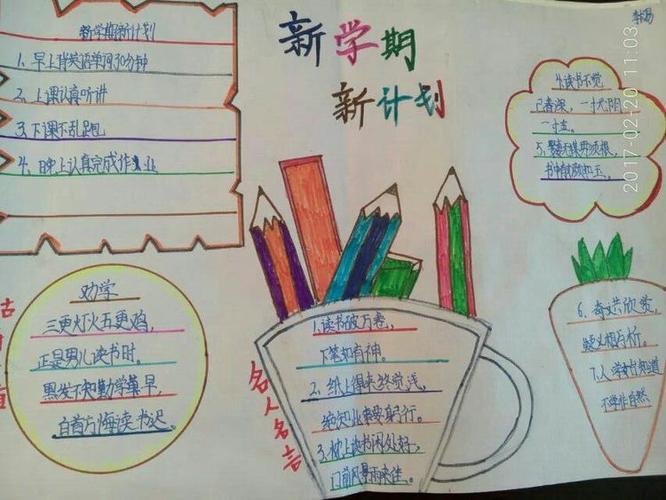 新学期新计划
1、早上背英语单词30分钟
2、上课认真听讲
3、下课不乱跑
4、晚上认真完成作业
新学期
新计划
4.读书不觉
已春深,一寸光阴
一寸金。
5.
书中
2017-02-20 11:03
劝学
三更灯火五更鸡,
正是男儿读书时。
黑发不知勤学早,
白首方悔读书迟。
名人名言
1.读书破万卷,
下笔如有神。
2.纸上得来终觉浅,
绝知此事要躬行。
3.枕上读书闲处好,
门前风景雨来佳。
6、奇文共欣赏,
疑义相与析。
7.人学始知道
不学非自然